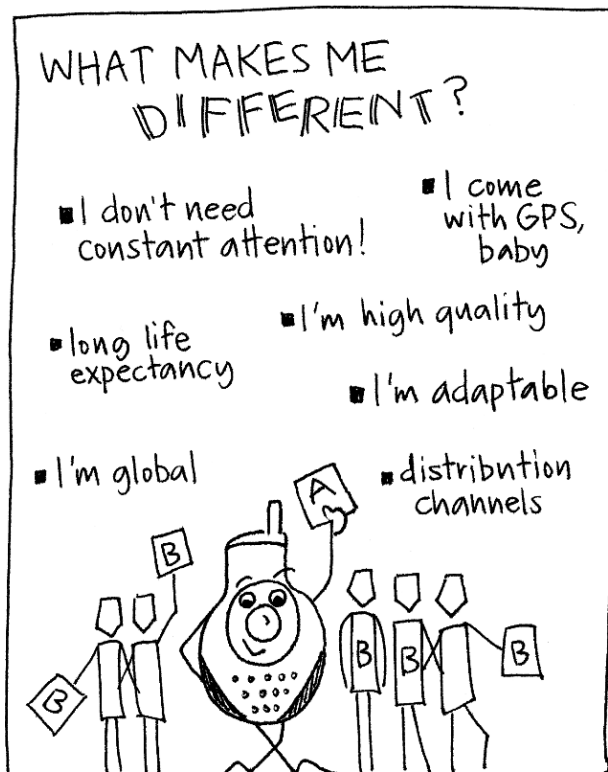 WHAT MAKES ME
DIFFERENT?
▪I don't need
constant attention!
▪I come
with GPS,
baby
▪long life
expectancy
▪I'm high quality
▪I'm adaptable
▪I'm global
▪distribution
channels
A
B
B
B
B
B